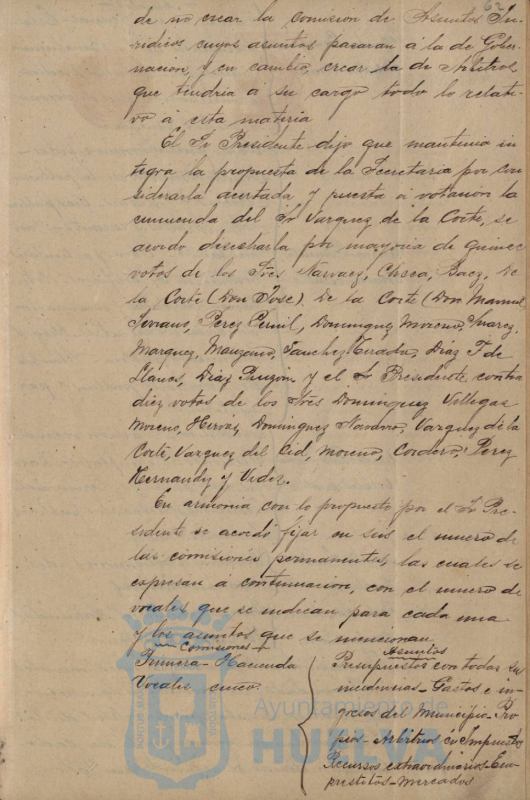 de no crear la comision de Asuntos Ju-
ridicos cuyos asuntos pasaran á la de Gober-
nacion, y en cambio, crear la de Arbitros
que tendria a su cargo todo lo relati-
vo á esta materia
El Sr Presidente dijo que mantenia in-
tegra la propuesta de la Secretaria por con
siderarla acertada y puesta á votacion la
enmienda del Sr Vazquez de la Corte, se
acordo desecharla por mayoria de quince
votos de los Sres Narvaez, Checa, Baez, De
la Corte (Don Jose), De la Corte (Don Manuel
Soriano, Perez Pernil, Dominguez Moreno, Suarez,
Marquez, Manzano, Sanchez Tirado, Diaz F de
Llanos, Diaz Pinzón y el Sr Presidente, contra
diez votos de los Sres Dominguez Villegas
Moreno, Hervás, Dominguez Navarro, Vazquez de la
Corte, Vazquez del Cid, Moreno, Cordero, Perez
Hernandez y Vides.
En armonia con lo propuesto por el Sr Pre-
sidente se acordó fijar en seis el numero de
las comisiones permanentes, las cuales se
expresan á continuacion, con el numero de
vocales que se indican para cada una
y los asuntos que se mencionan
Comisiones
Asuntos
Primera - Hacienda
Vocales cinco.
Presupuestos con todas sus
incidencias - Gastos e in-
gresos del Municipio - Pro
pios - Arbitrios e Impuestos
Recursos extraordinarios - Em-
prestitos - Mercados
Ayuntamiento de
HUELVA